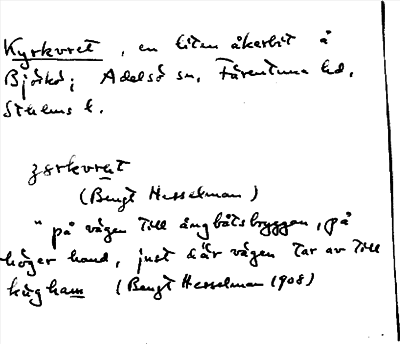 Kyrkvret, en liten åkerbit å
Björkö; Adelsö sn, Färentuna hd,
Sthlms l.
(Bengt Hesselman)
"på vägen till ångbåtsbryggan, på
höger hand, just där vägen tar av till
(Bengt Hesselman 1908)